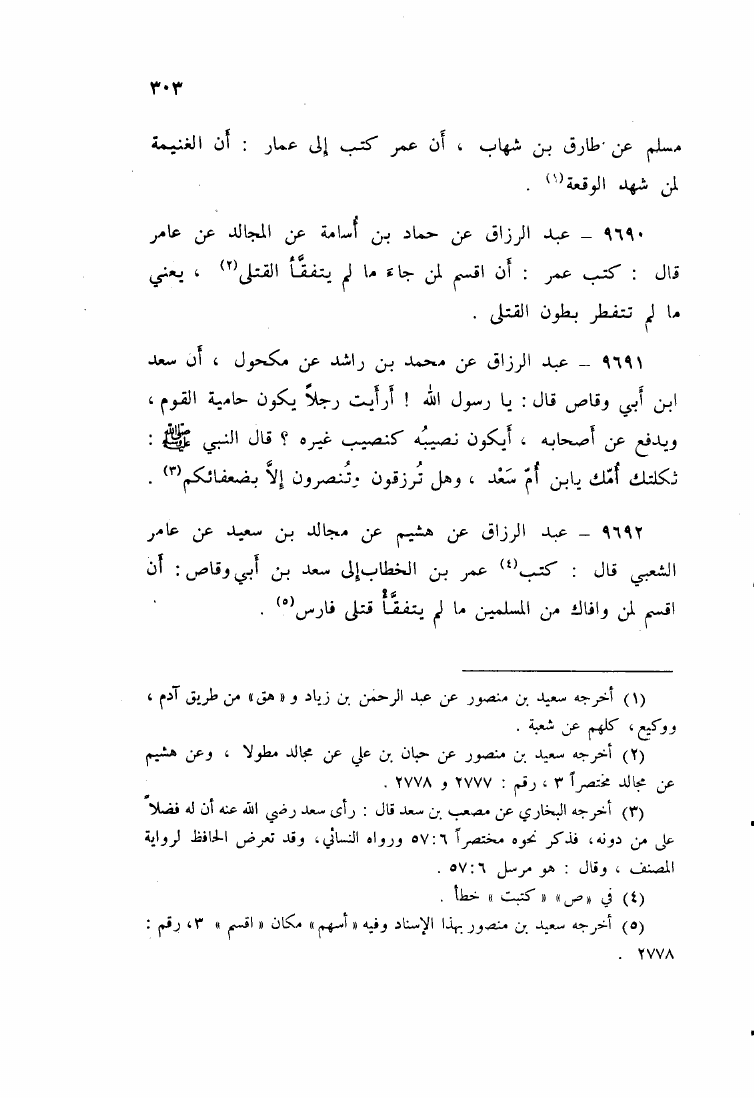 ٣٠٣
مسلم عن طارق بن شهاب ، أن عمر كتب إلى عمار : أن الغنيمة
لمن شهد الوقعة(١) .
٩٦٩٠ – عبد الرزاق عن حماد بن أُسامة عن المجالد عن عامر
قال : كتب عمر : أن اقسم لمن جاءَ ما لم يتفقَّأ القتلى(٢) ، يعني
ما لم تتفطر بطون القتلى .
٩٦٩١ – عبد الرزاق عن محمد بن راشد عن مكحول ، أن سعد
ابن أبي وقاص قال : يا رسول الله ! أرأيت رجلاً يكون حامية القوم ،
ويدفع عن أصحابه ، أيكون نصيبُه كنصيب غيره ؟ قال النبي ﷺ :
ثكلتك أُمّك يابن أُمّ سَعْد ، وهل تُرزقون وتُنصرون إلاَّ بضعفائكم(٣) .
٩٦٩٢ – عبد الرزاق عن هشيم عن مجالد بن سعيد عن عامر
الشعبي قال : كتب(٤) عمر بن الخطاب إلى سعد بن أبي وقاص : أن
اقسم لمن وافاك من المسلمين ما لم يتفقَّأْ قتلى فارس(٥) .
(١) أخرجه سعيد بن منصور عن عبد الرحمٰن بن زياد و «هق» من طريق آدم ،
ووكيع ، كلهم عن شعبة .
(٢) أخرجه سعيد بن منصور عن حبان بن علي عن مجالد مطولا ، وعن هشيم
عن مجالد مختصراً ٣ ، رقم : ٢٧٧٧ و ٢٧٧٨ .
(٣) أخرجه البخاري عن مصعب بن سعد قال : رأى سعد رضي الله عنه أن له فضلاً
على من دونه، فذكر نحوه مختصراً ٥٧:٦ ورواه النسائي، وقد تعرض الحافظ لرواية
المصنف ، وقال : هو مرسل ٥٧:٦ .
(٤) في «ص» «كتبت» خطأ .
(٥) أخرجه سعيد بن منصور بهذا الإسناد وفيه «أسهم» مكان «اقسم» ٣، رقم :
٢٧٧٨ .